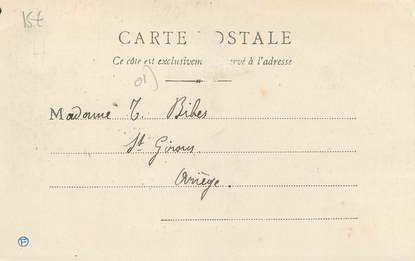 15t
CARTE OSTALE
Ce côté est exclusivem rvé à l'adresse
01)
Madame T. Bibes
St Girons.
Ariège.